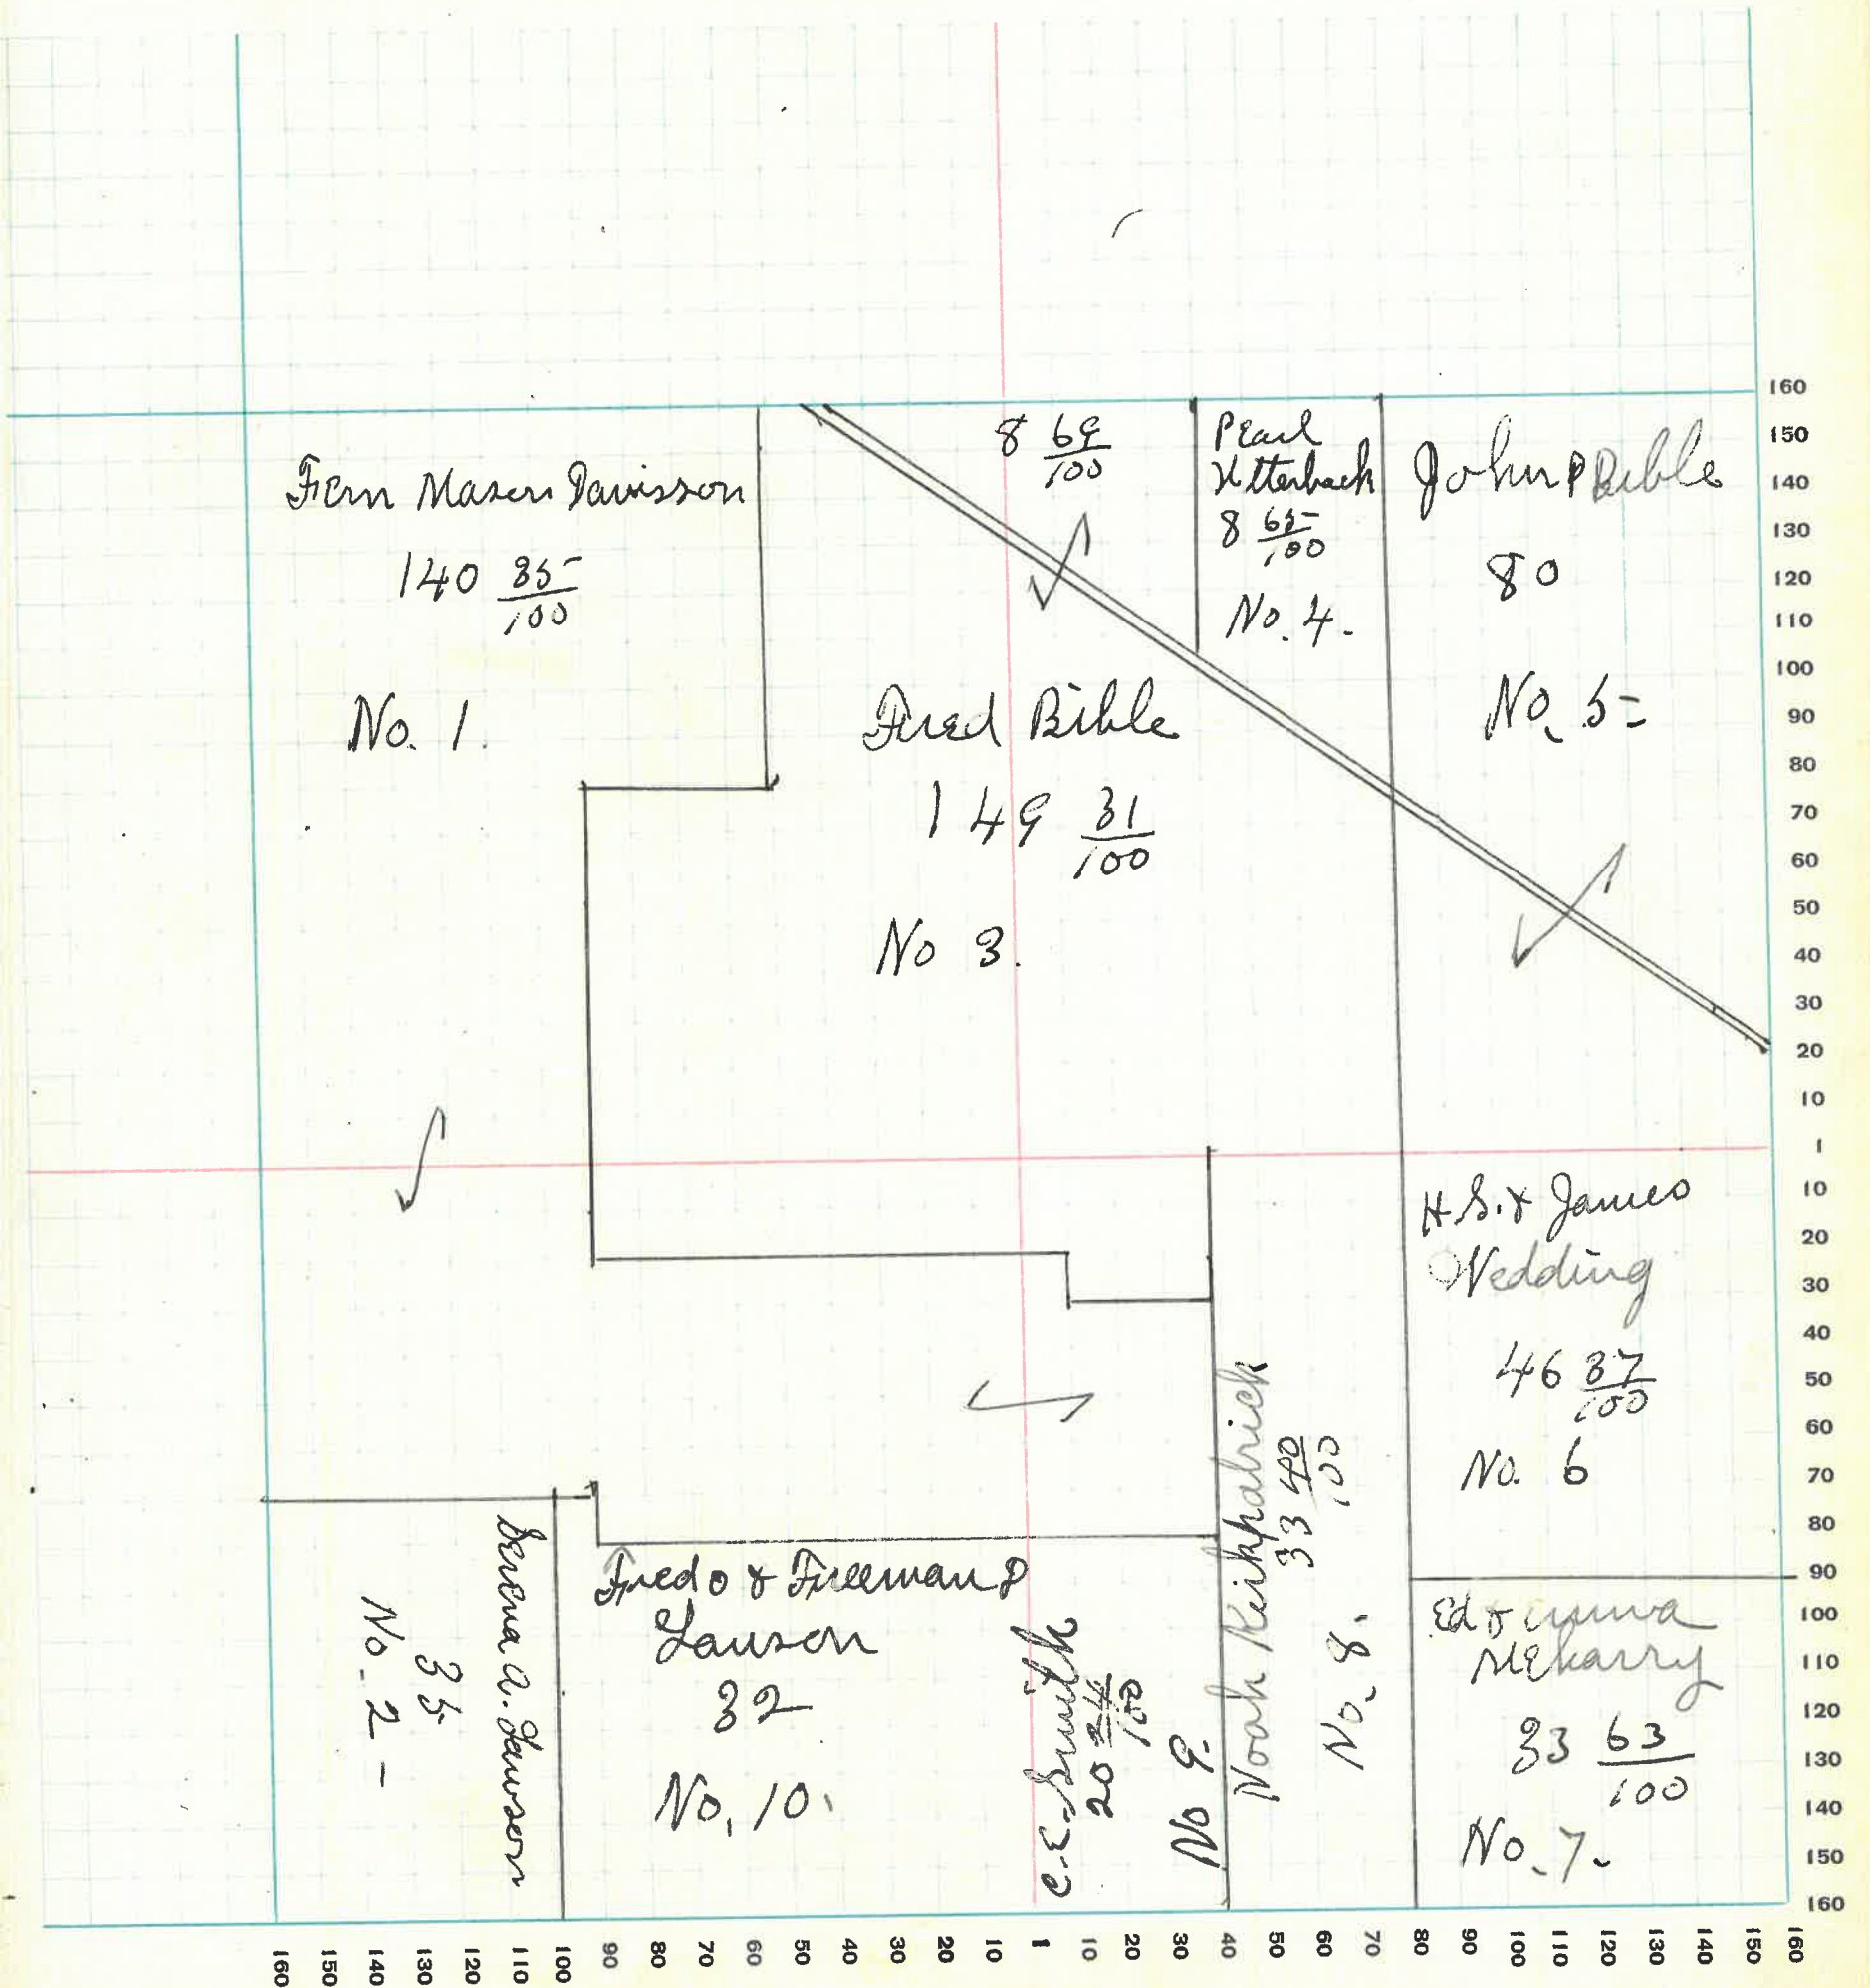 Fern Mason Davisson
140 85/100
No. 1.
8 69/100
Pearl
Utterback
8 65/100
No. 4.
John P Bible
80
No. 5
Fred Bible
149 31/100
No 3.
H.S. & James
Wedding
46 37/100
No. 6
Ed &
33 63/100
No. 7.
Noah Keirkpadrick
33 40/100
No. 8.
C.E. Smith
20 24/100
No 9.
Fred O & Freeman P
Lawson
32
No. 10.
Serena A. Lawson
35
No. 2 -
160
150
140
130
120
110
100
90
80
70
60
50
40
30
20
10
1
10
20
30
40
50
60
70
80
90
100
110
120
130
140
150
160
160 150 140 130 120 110 100 90 80 70 60 50 40 30 20 10 1 10 20 30 40 50 60 70 80 90 100 110 120 130 140 150 160